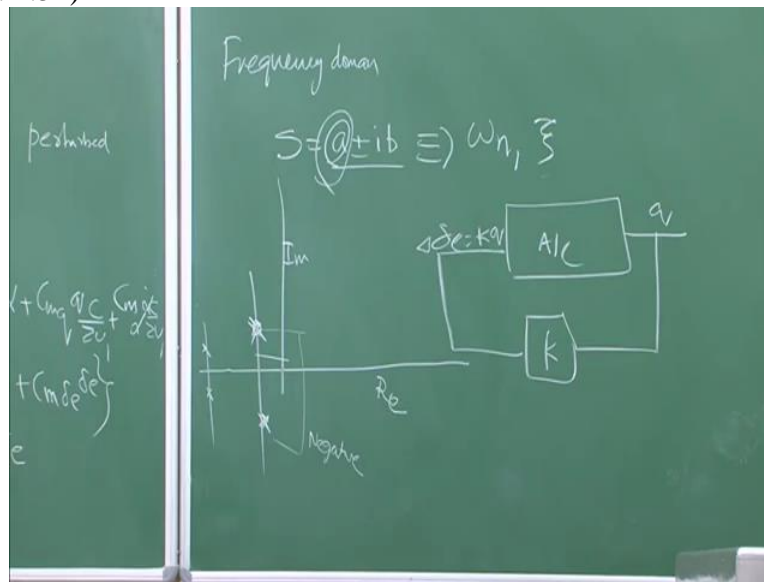 perturbed
+ Cmq qc/2v + Cmα̇
+ Cmδe δe}
e
Frequency doman
S = a ± ib ≡) ωn, ξ
Im
Re
Negative
Δδe = Kq
A/c
q
K